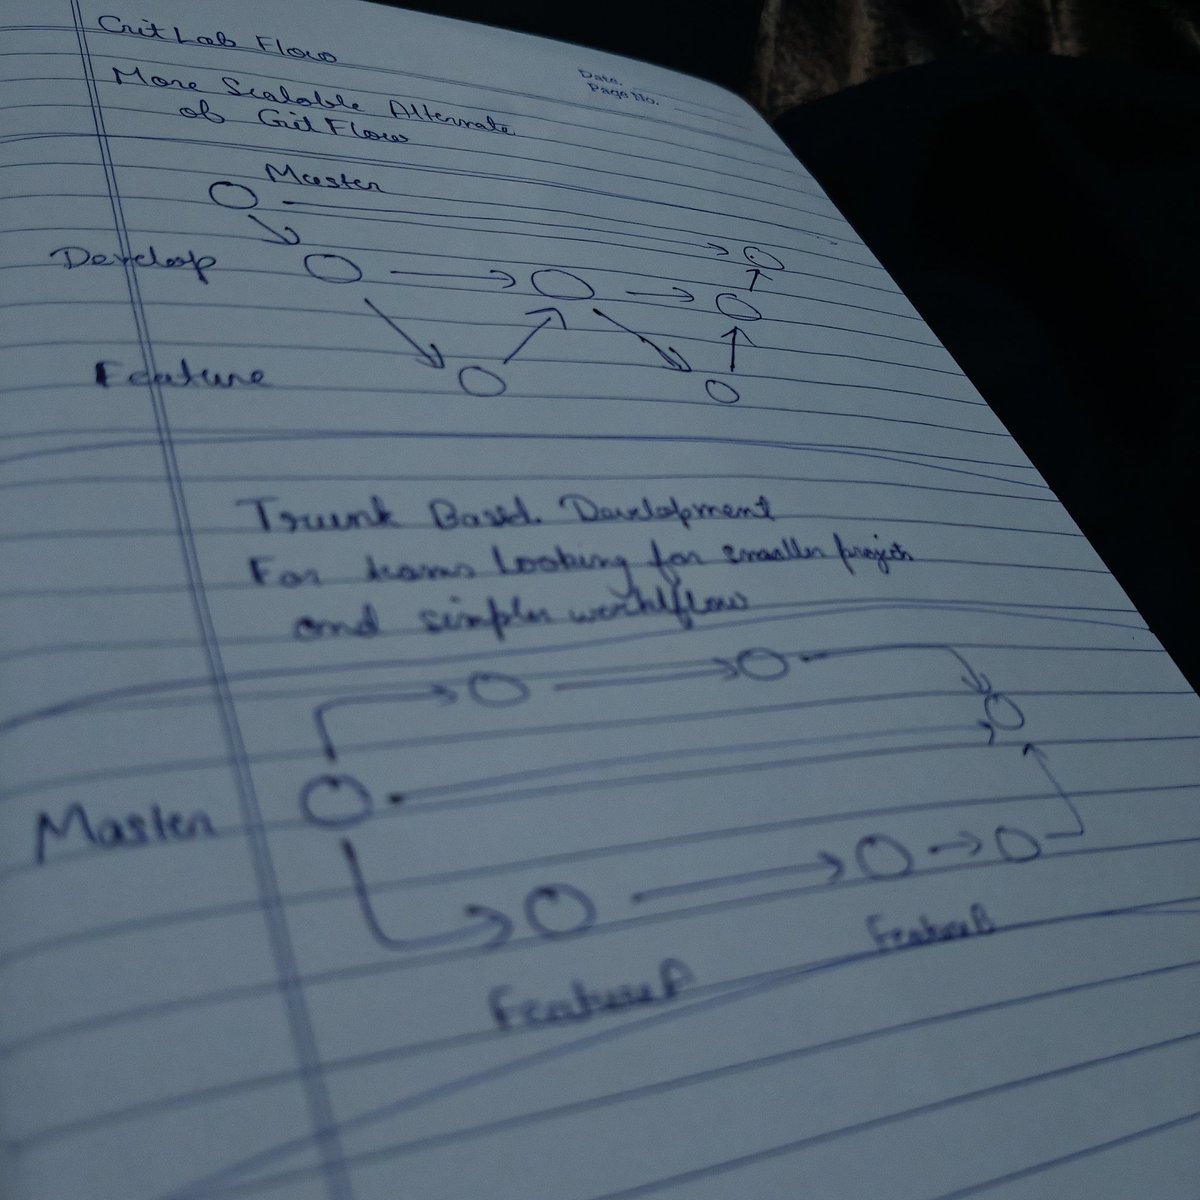 GitLab Flow
Date.
Page No.
More Scalable Alternate
of Git Flow
Master
Develop
Feature
Trunk Based Development
For teams looking for smaller project
and simpler workflow
Master
Feature B
Feature A